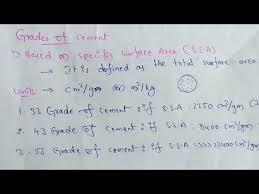 Grades of cement
1) Based on specific surface Area (S.S.A)
→ It is defined as the total surface area
Unit: cm²/gm (or) m²/kg
1. 33 Grade of cement : if S.S.A : 2250 cm²/gm
2. 43 Grade of cement : if S.S.A : 3400 cm²/gm
3. 53 Grade of cement : if S.S.A :